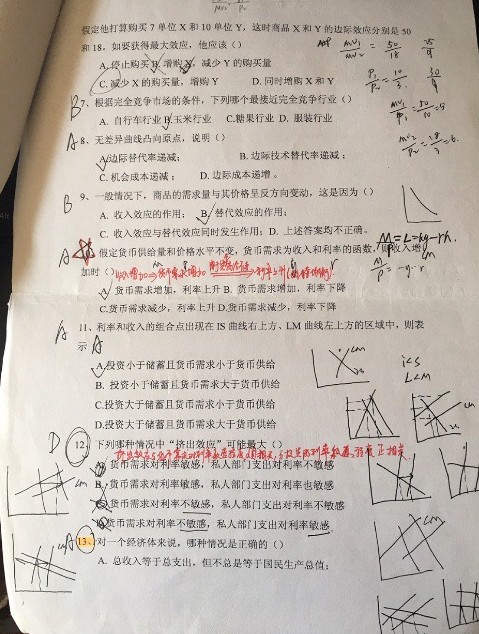 假定他打算购买 7 单位 X 和 10 单位 Y，这时商品 X 和 Y 的边际效应分别是 50
和 18，如要获得最大效应，他应该（）
A. 停止购买 B. 增购 X，减少 Y 的购买量
C. 减少 X 的购买量，增购 Y D. 同时增购 X 和 Y
B 7、根据完全竞争市场的条件，下列哪个最接近完全竞争行业（）
A. 自行车行业 B. 玉米行业 C.糖果行业 D. 服装行业
A 8、无差异曲线凸向原点，说明（）
A.边际替代率递减； B. 边际技术替代率递减；
C. 机会成本递减； D. 边际成本递增。
B 9、一般情况下，商品的需求量与其价格呈反方向变动，这是因为（）
A. 收入效应的作用； B. 替代效应的作用；
C. 收入效应与替代效应同时发生作用；D. 上述答案均不正确。
A 假定货币供给量和价格水平不变，货币需求为收入和利率的函数，则收入增
加时（）
A. 货币需求增加，利率上升 B. 货币需求增加，利率下降
C.货币需求减少，利率上升 D.货币需求减少，利率下降
A 11、利率和收入的组合点出现在 IS 曲线右上方、LM 曲线左上方的区域中，则表
示 A
A.投资小于储蓄且货币需求小于货币供给
B. 投资小于储蓄且货币需求大于货币供给
C.投资大于储蓄且货币需求小于货币供给
D.投资大于储蓄且货币需求大于货币供给
D 12、下列哪种情况中“挤出效应”可能最大（）
货币需求对利率敏感，私人部门支出对利率不敏感
货币需求对利率敏感，私人部门支出对利率也敏感
货币需求对利率不敏感，私人部门支出对利率不敏感
货币需求对利率不敏感，私人部门支出对利率敏感
A 13、对一个经济体来说，哪种情况是正确的（）
A. 总收入等于总支出，但不总是等于国民生产总值；